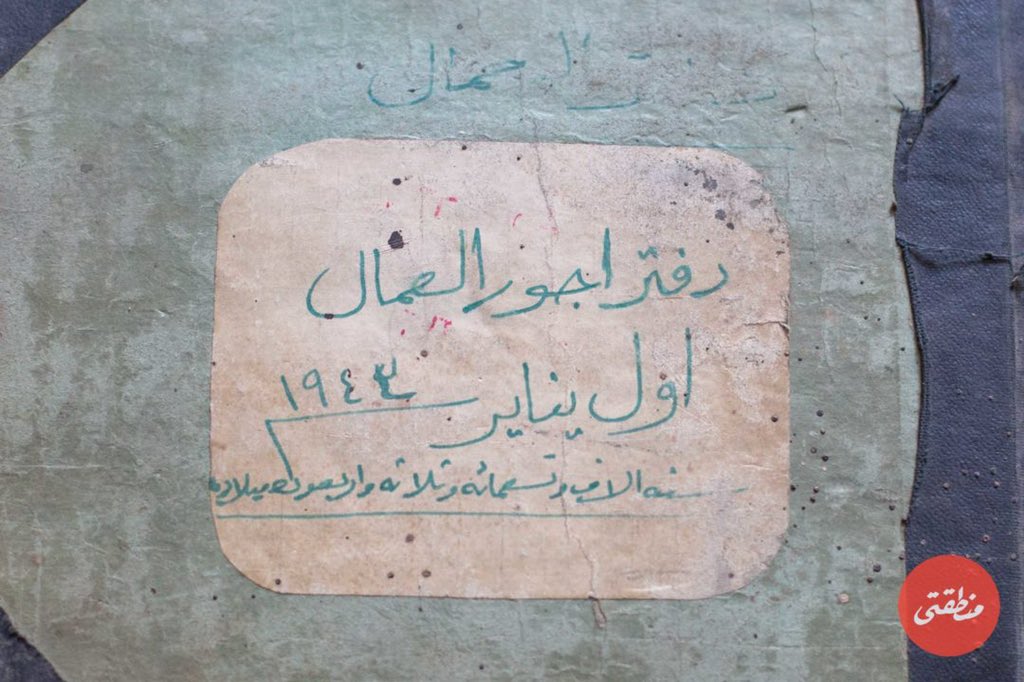 العمال
دفتر اجور العمال
اول يناير ١٩٤٣
سنه الاف وتسعمائه وثلاثه واربعون ميلاديه
منطقتي